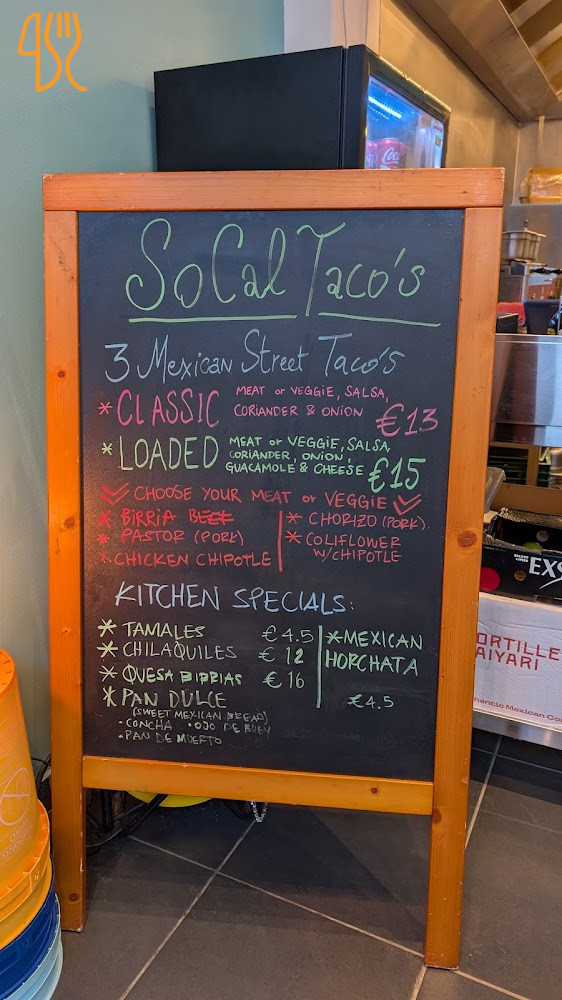 SoCal Taco's
3 Mexican Street Taco's
* CLASSIC MEAT or VEGGIE, SALSA,
CORIANDER & ONION €13
* LOADED MEAT or VEGGIE, SALSA,
CORIANDER, ONION,
GUACAMOLE & CHEESE €15
CHOOSE YOUR MEAT or VEGGIE
* BIRRIA BEEF
* PASTOR (PORK)
* CHICKEN CHIPOTLE
* CHORIZO (PORK).
* COLIFLOWER
W/CHIPOTLE
KITCHEN SPECIALS:
* TAMALES €4.5
* CHILAQUILES €12
* QUESA BIRRIAS €16
* PAN DULCE
(SWEET MEXICAN BREAD)
- CONCHA • OJO DE BUEY
- PAN DE MUERTO
* MEXICAN
HORCHATA
€4.5
EXS
ORTILLE
AIYARI
hentic Mexican Co